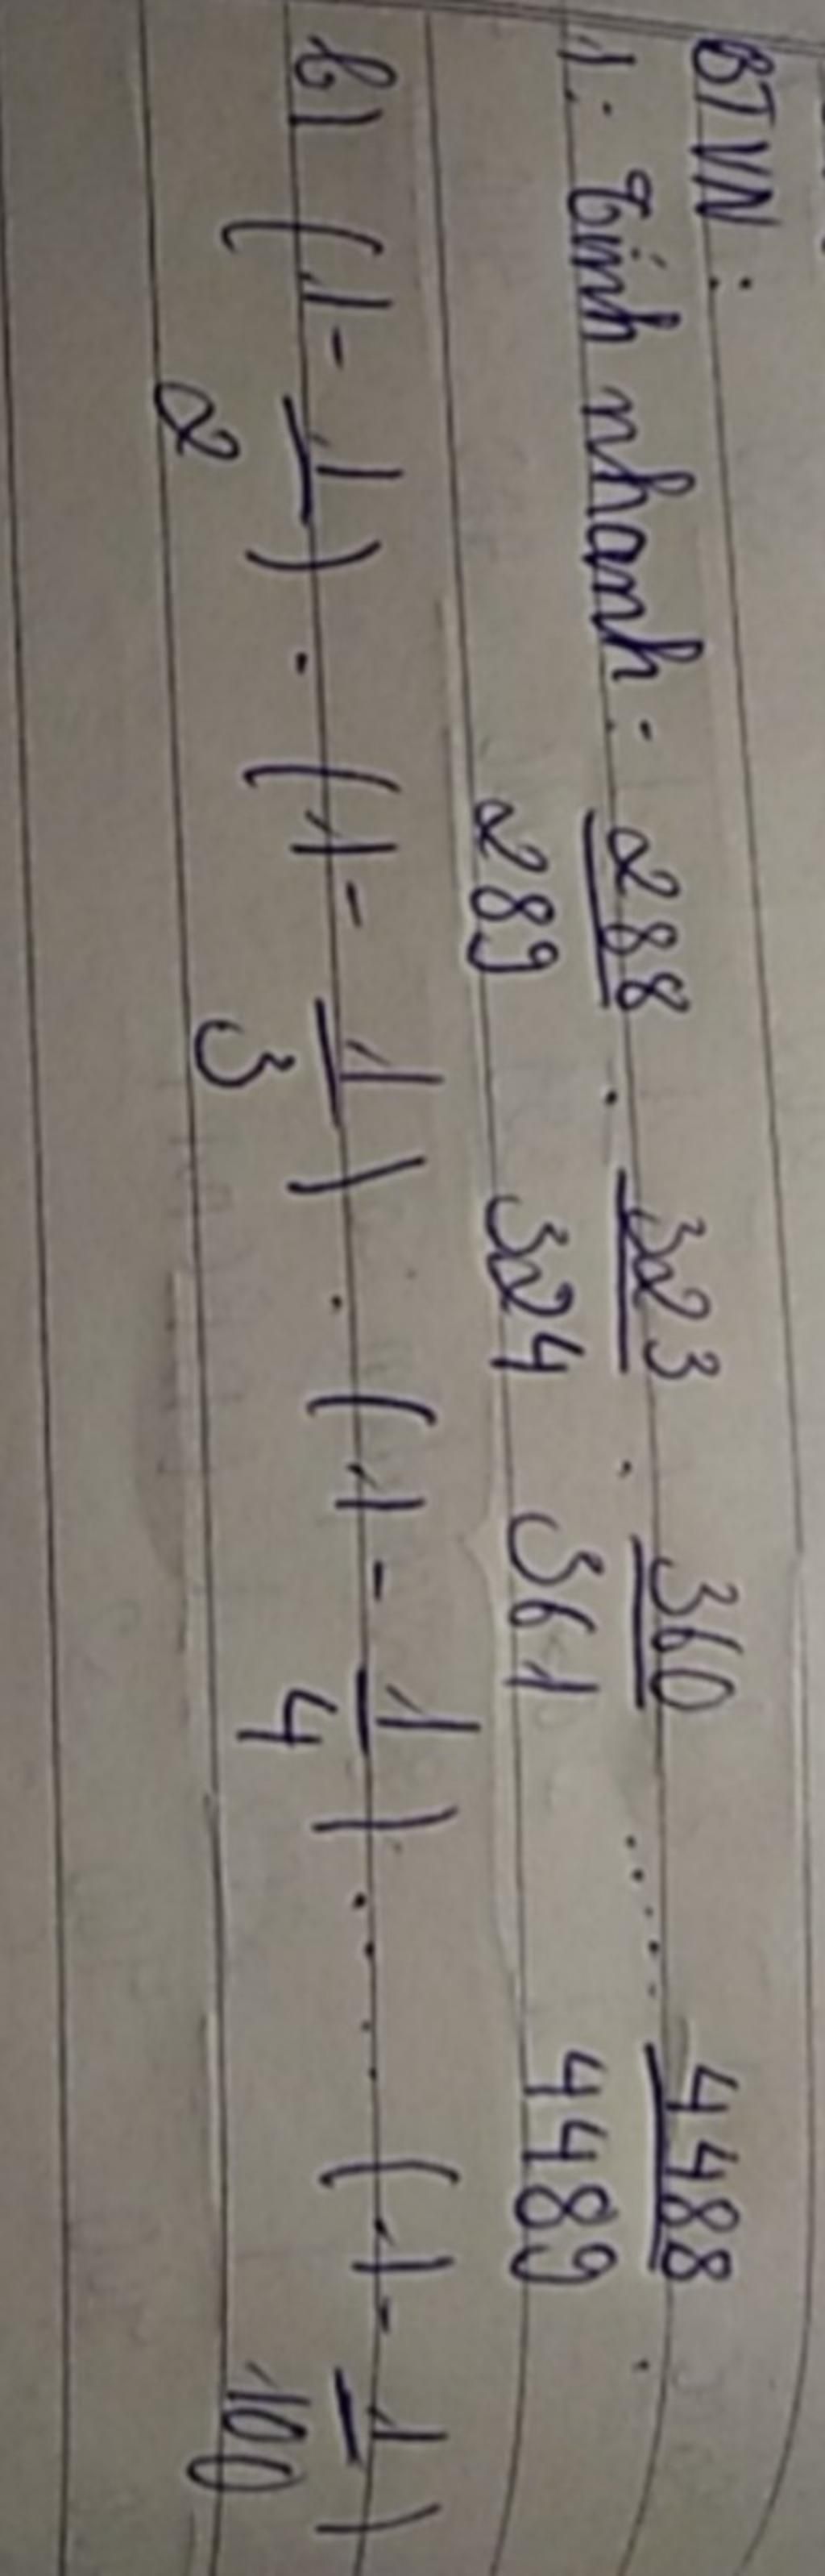 BTVN:
1: Tính nhanh: 288/289 . 323/324 . 360/361 ..... 4488/4489 .
b) (1 - 1/2) . (1 - 1/3) . (1 - 1/4) ..... (1 - 1/100)